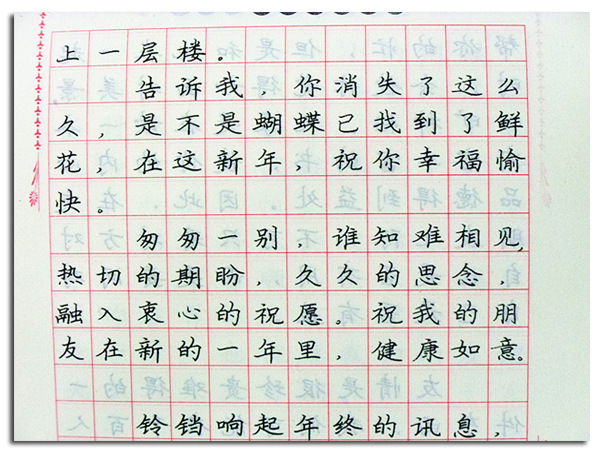 上一层楼。
告诉我，你消失了这么
久，是不是蝴蝶已找到了鲜
花，在这新年，祝你幸福愉
快。
匆匆一别，谁知难相见，
热切的期盼，久久的思念，
融入衷心的祝愿。祝我的朋
友在新的一年里，健康如意。
铃铛响起年终的讯息，